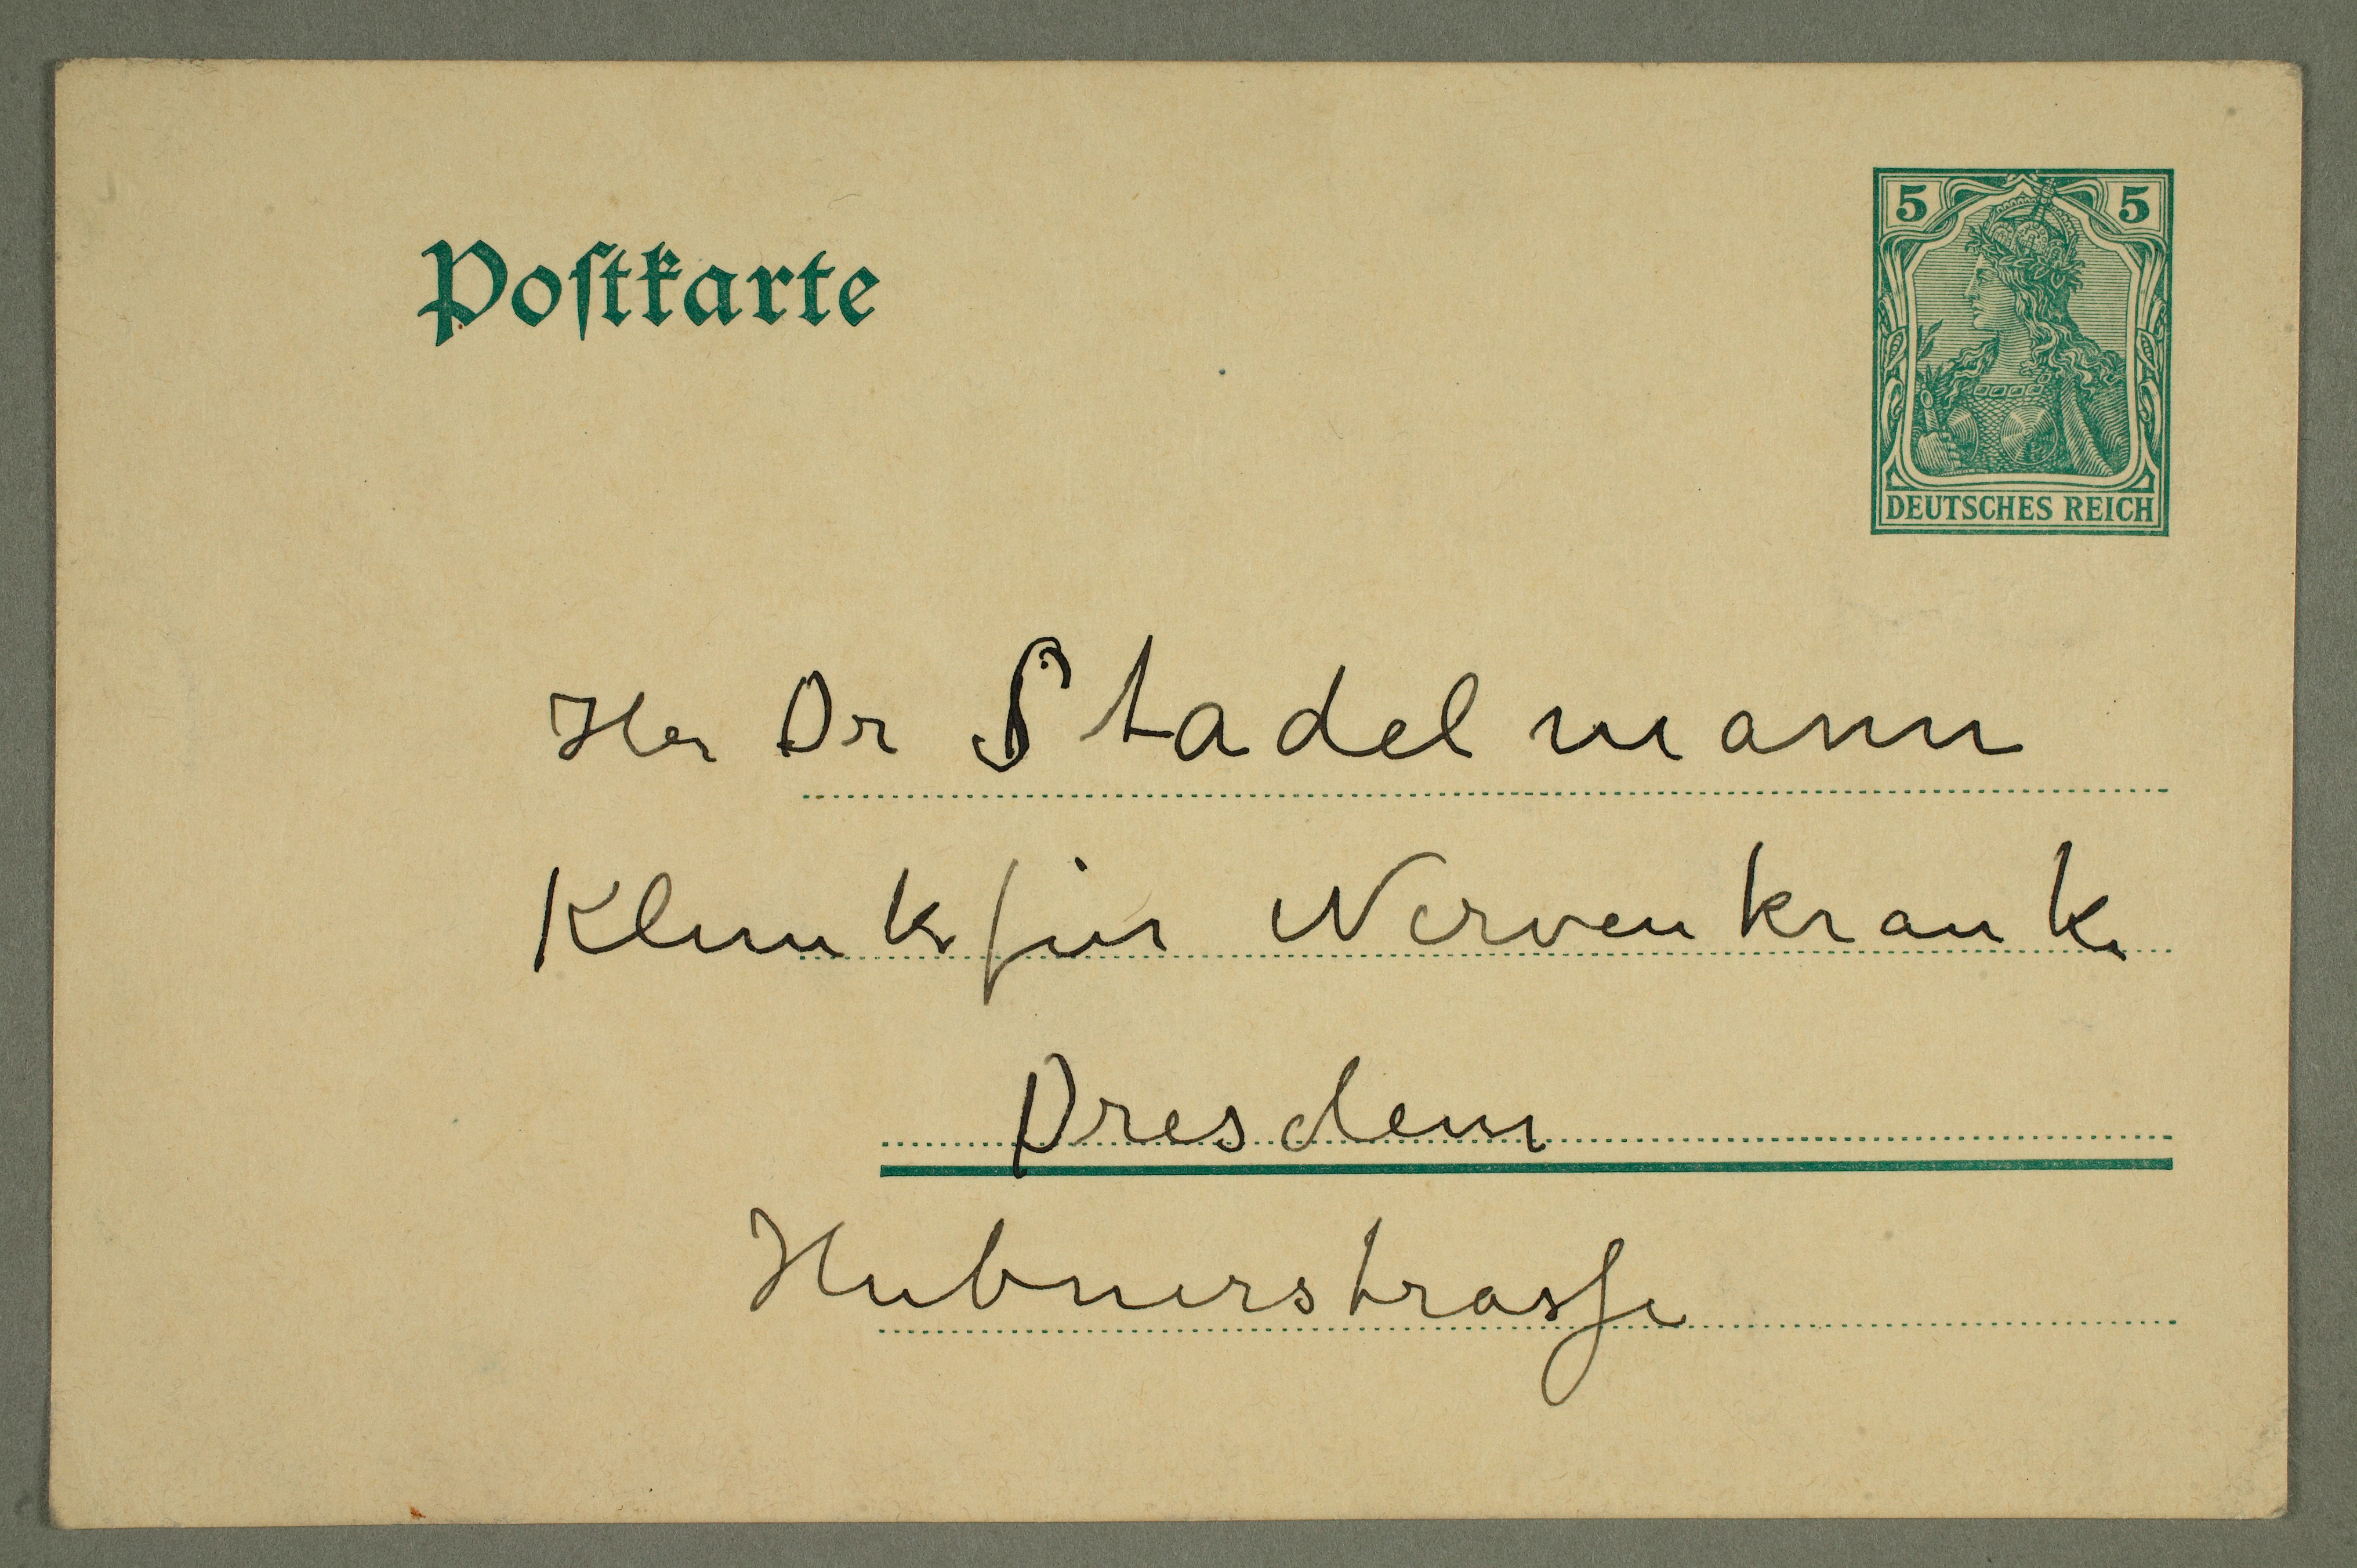 Postkarte
5 5
DEUTSCHES REICH
Her Dr Stadelmann
Klinik für Nervenkranke
Dresden
Hubnerstrasse